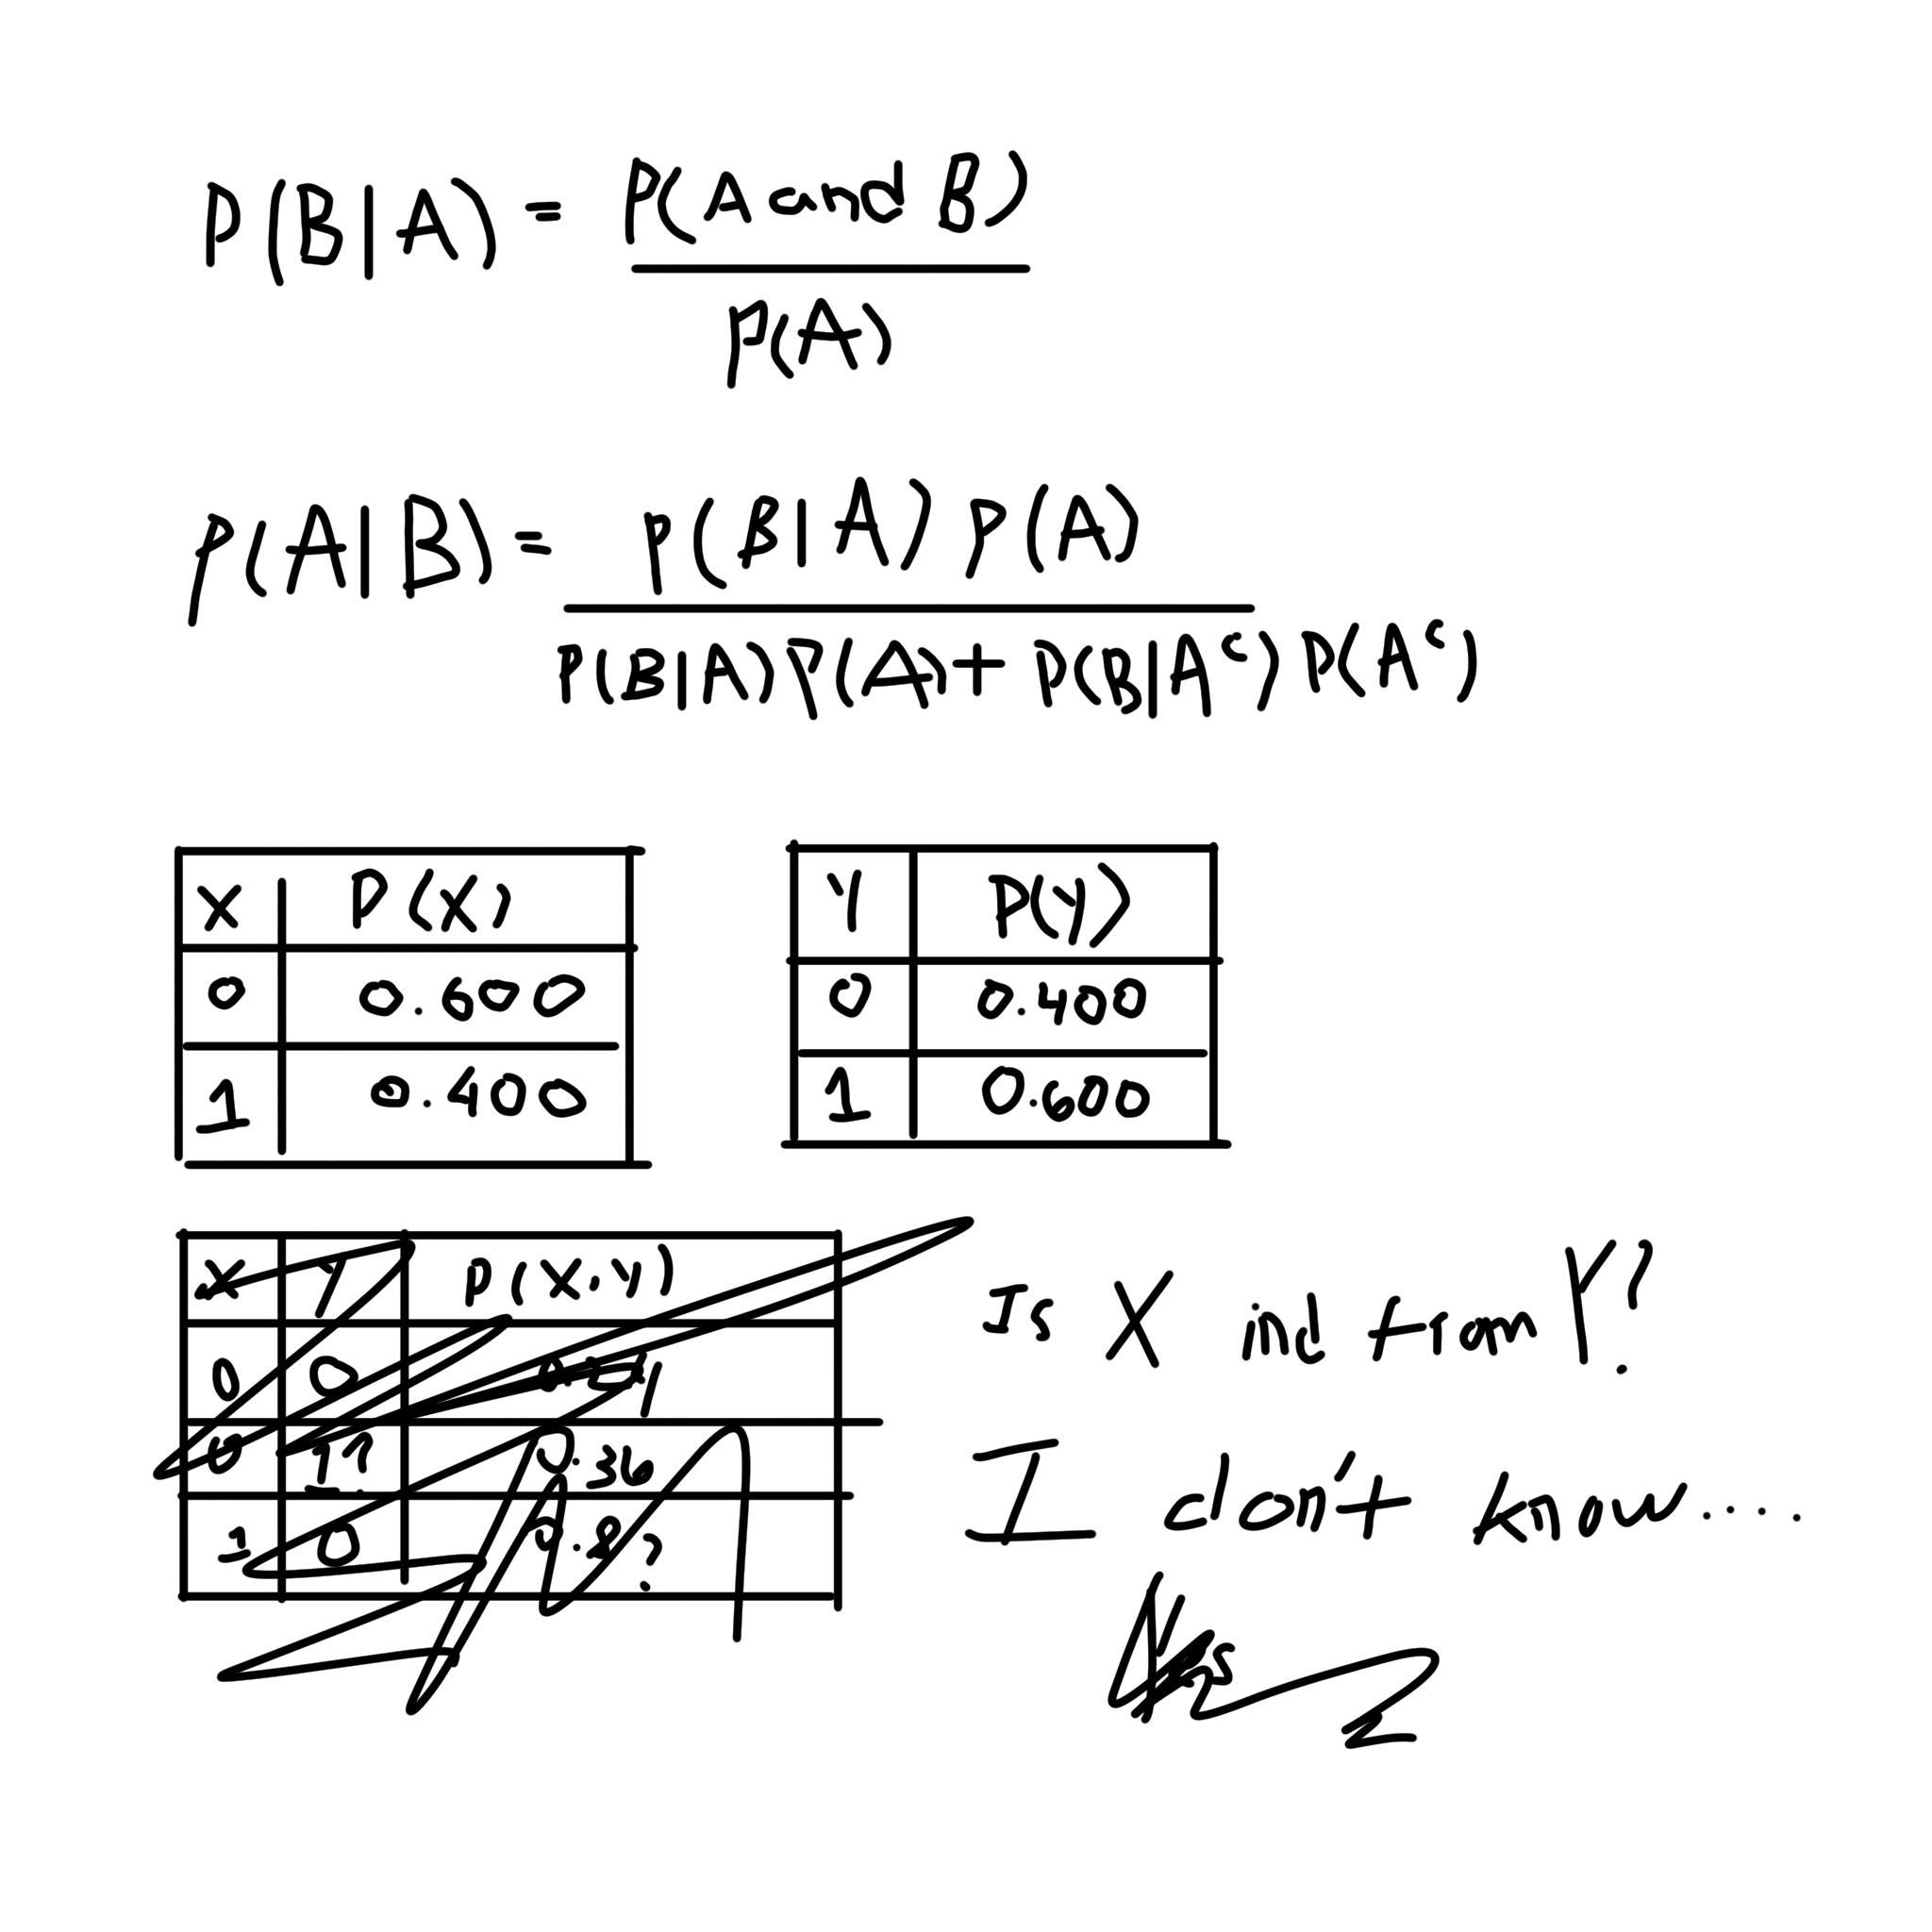 P(B|A) = P(A and B)
P(A)
P(A|B) = P(B|A) P(A)
P(B|A) P(A) + P(B|Aᶜ) P(Aᶜ)
X P(X)
0 0.600
1 0.400
Y P(Y)
0 0.400
1 0.600
X Y P(X,Y)
0 0
0 1? 0.36
1 0 0.8?
Is X ind from Y?
I don't know....